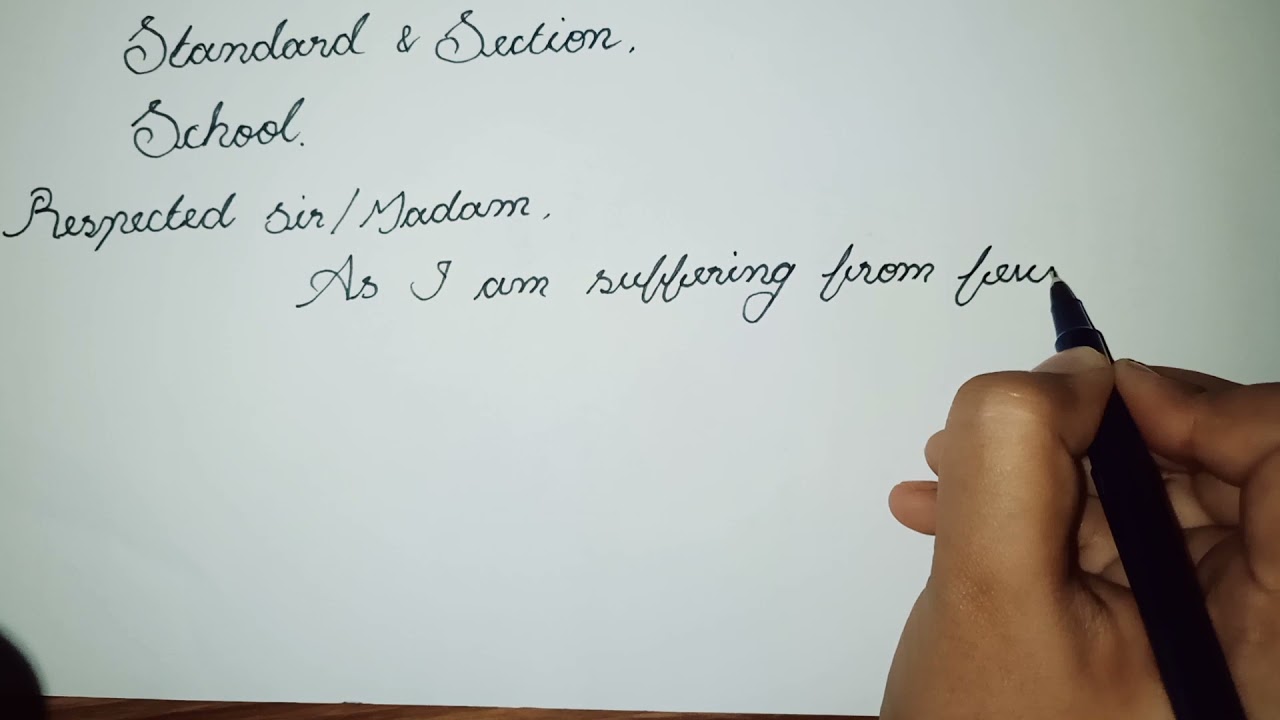 Standard & Section.
School.
Respected sir/Madam,
As I am suffering from feve